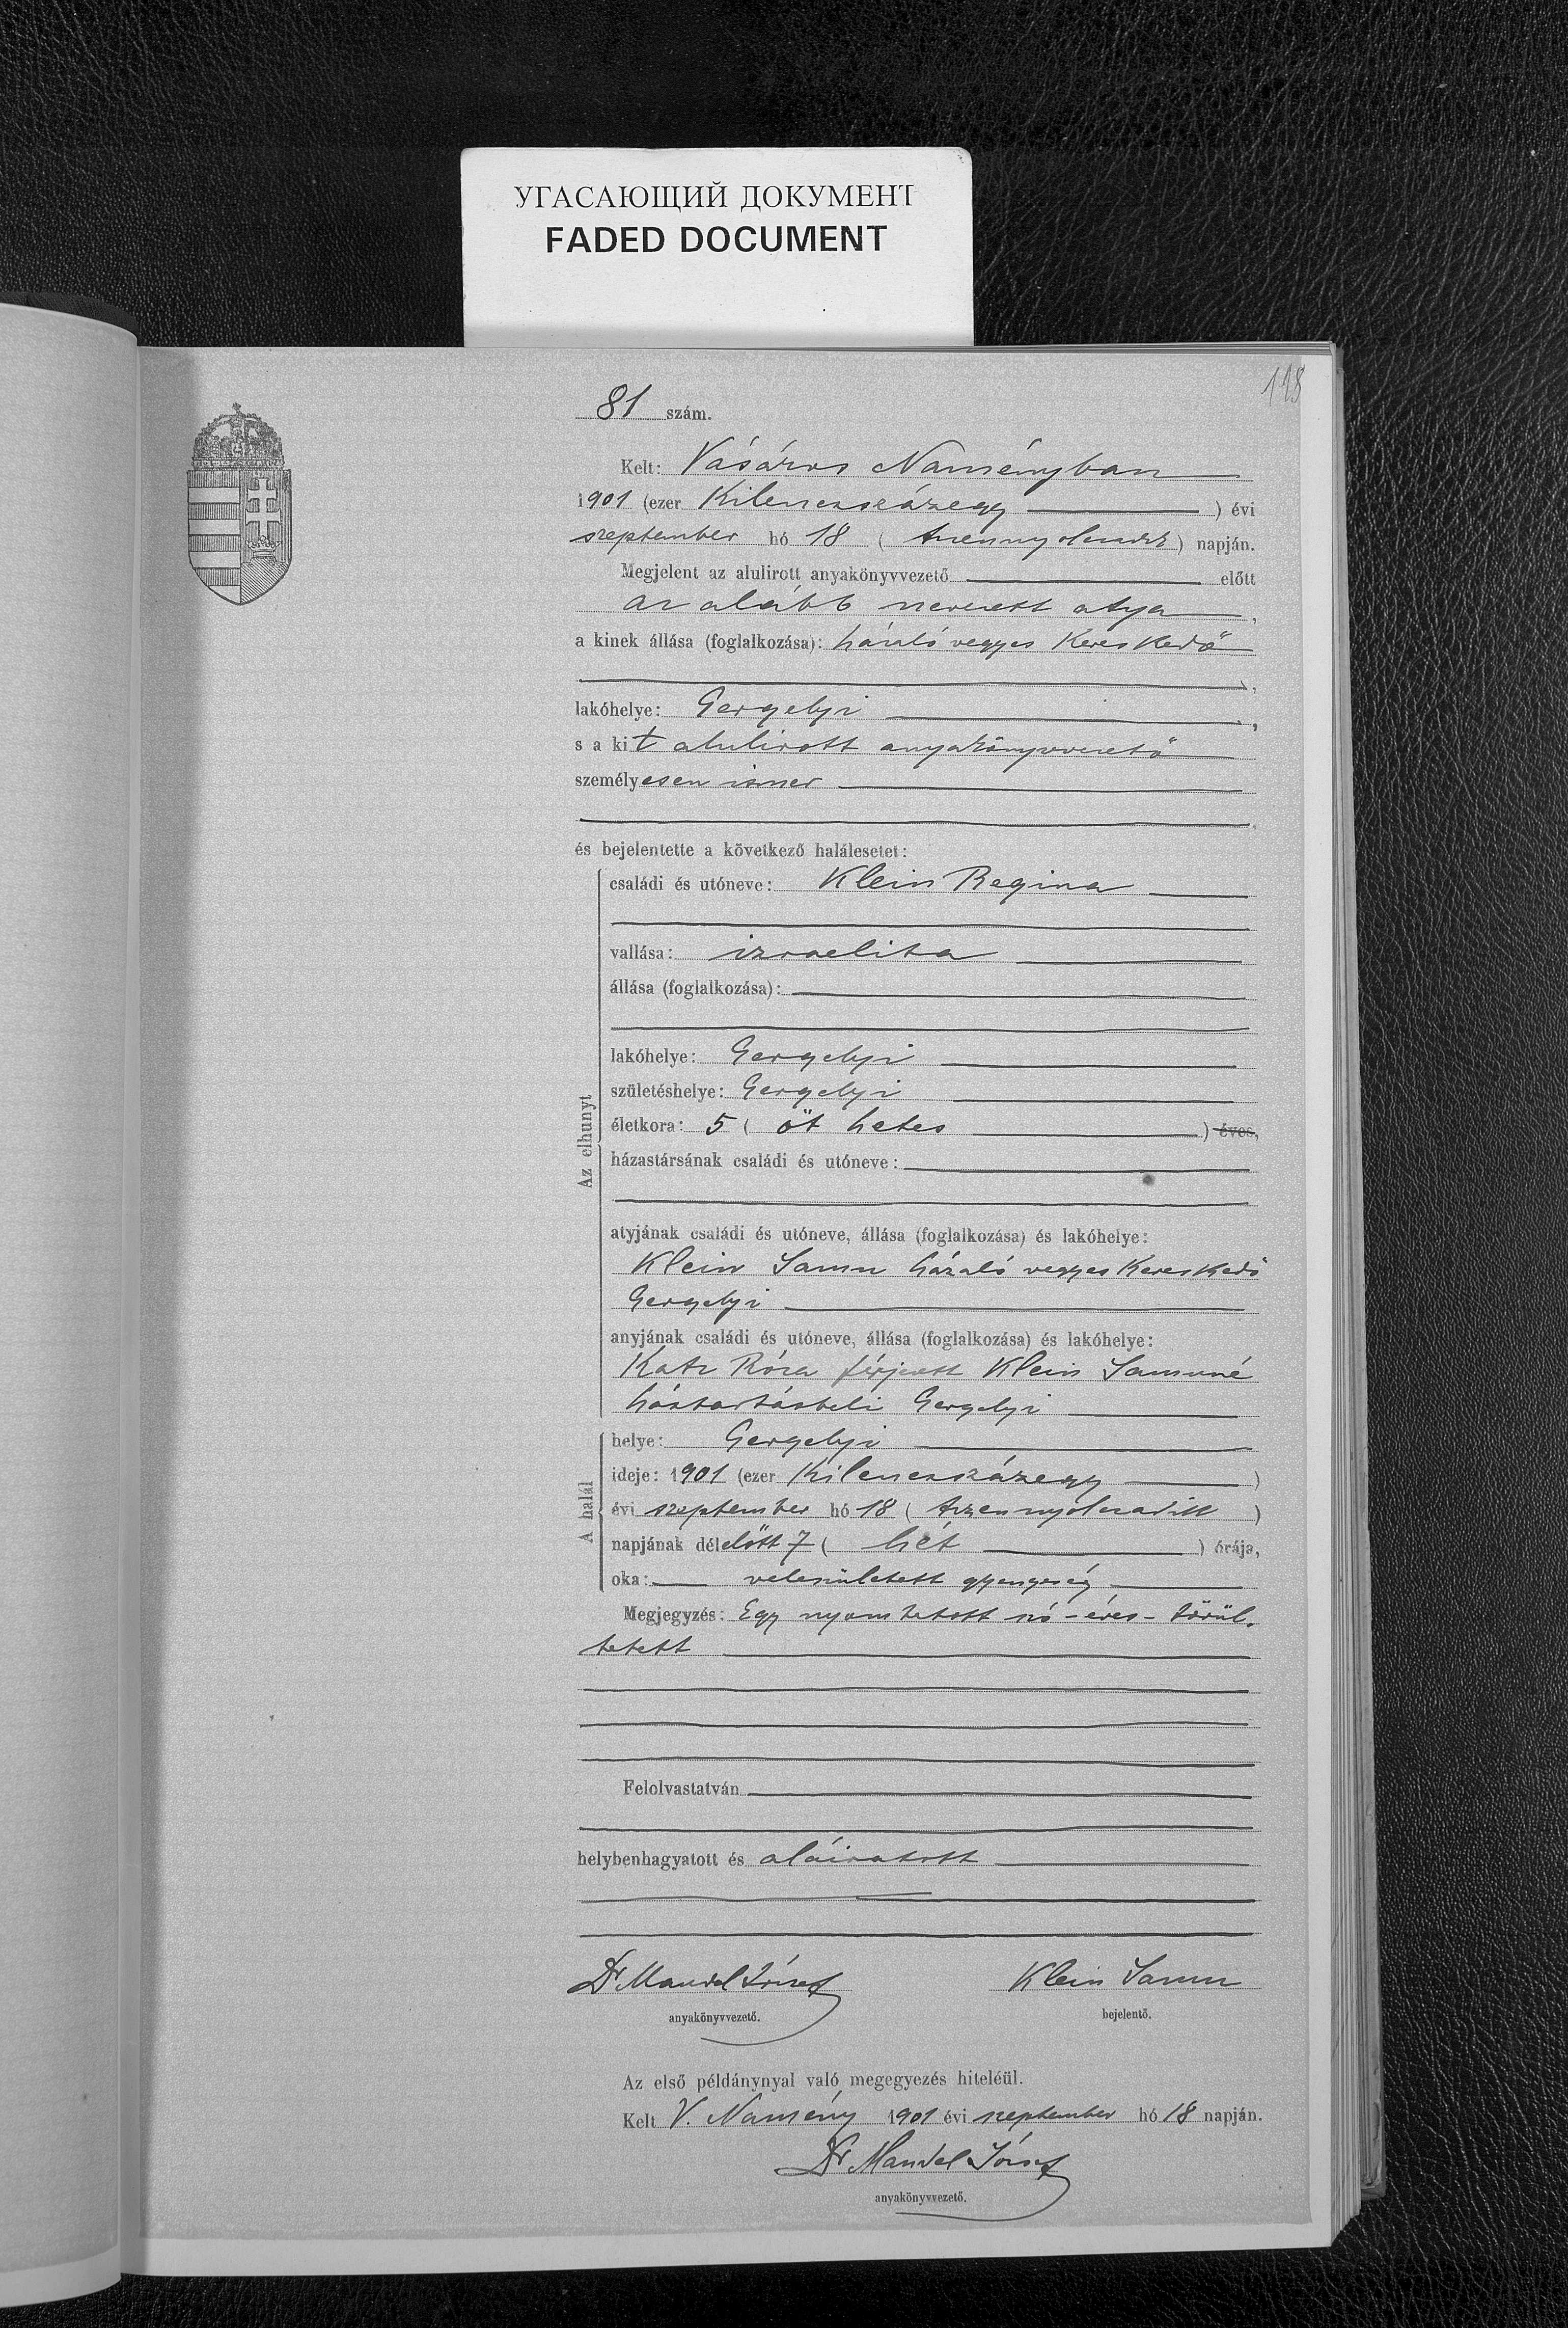 УГАСАЮЩИЙ ДОКУМЕНТ
FADED DOCUMENT
118
81 szám.
Kelt: Vásáros Naményban
1901 (ezer Kilenczszázegy ) évi
szeptember hó 18 ( tizennyolczadik ) napján.
Megjelent az alulirott anyakönyvvezető előtt
az alább nevezett atya ,
a kinek állása (foglalkozása): házaló vegyes Kereskedő
lakóhelye: Gergelyi ,
s a kit alulirott anyakönyvvezető
személyesen ismer
és bejelentette a következő halálesetet:
Az elhunyt
családi és utóneve: Klein Regina
vallása: izraelita
állása (foglalkozása):
lakóhelye: Gergelyi
születéshelye: Gergelyi
életkora: 5 ( öt hetes ) éves,
házastársának családi és utóneve:
atyjának családi és utóneve, állása (foglalkozása) és lakóhelye:
Klein Samu házaló vegyes Kereskedő
Gergelyi
anyjának családi és utóneve, állása (foglalkozása) és lakóhelye:
Katz Róza férjezett Klein Samuné
háztartásbeli Gergelyi
A halál
helye: Gergelyi
ideje: 1901 (ezer Kilenczszázegy )
évi szeptember hó 18 ( tizennyolczadik )
napjának délelőtt 7 ( hét ) órája,
oka: veleszületett gyengeség
Megjegyzés: Egy nyomtatott szó - éves - törül.
tetett
Felolvastatván
helybenhagyatott és aláiratott
Dr Mandel József Klein Samu
anyakönyvvezető. bejelentő.
Az első példánynyal való megegyezés hiteléül.
Kelt V. Namény 1901 évi szeptember hó 18 napján.
Dr Mandel József
anyakönyvvezető.